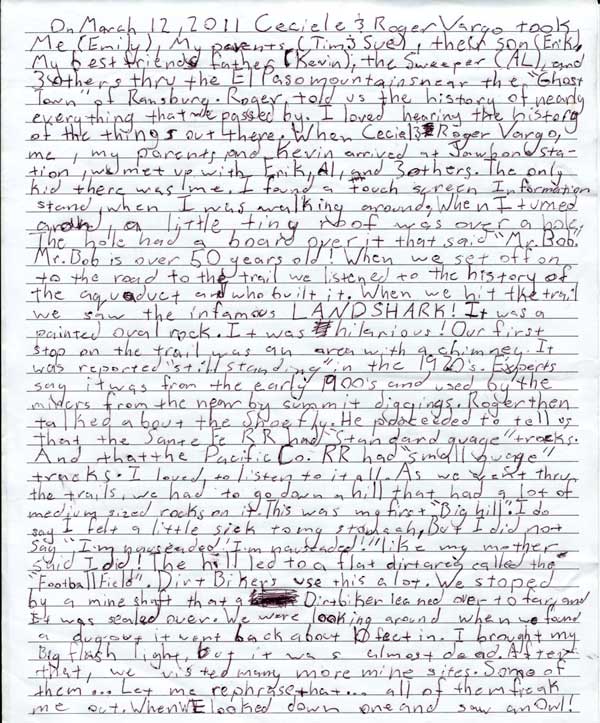 On March 12, 2011 Ceciele & Roger Vargo took
Me (Emily), My parents (Tim & Sue), their son (Erik,
My best friends father (Kevin), the Sweeper (AL), and
3 others thru the El Paso mountains near the "Ghost
Town" of Ransburg. Roger, told us the history of nearly
everything that we passed by. I loved hearing the history
of the things out there. When Cecial & Roger Vargo,
me, my parents, and Kevin arrived at Jawbone sta-
tion, we met up with Erik, Al, and 3 others. The only
kid there was me. I found a touch screen Information
stand, when I was walking around. When I turned
, a little tiny roof was over a hole.
The hole had a board over it that said "Mr. Bob."
Mr. Bob is over 50 years old! When we set off on
to the road to the trail we listened to the history of
the aquaduct and who built it. When we hit the trail
we saw the infamous LANDSHARK! It was a
painted oval rock. It was hilarious! Our first
stop on the trail was an area with a chimney. It
was reported "still standing" in the 1920's. Experts
say it was from the early 1900's and used by the
miners from the near by summit diggings. Roger then
talked about the Shoefly. He proceeded to tell us
that the Sante fe RR had "Standard guage" tracks.
And that the Pacific Co. RR had "small guage"
tracks. I loved to listen to it all. As we went thru
the trails, we had to go down a hill that had a lot of
medium sized rocks on it. This was my first "Big hill". I do
say I felt a little sick to my stomach, But I did not
say "I'm nauseaded! I'm nauseaded!" like my mother
said I did! The hill led to a flat dirt area called the
"Football Field". Dirt Bikers use this a lot. We stoped
by a mine shaft that a Dirtbiker leaned over to far, and
It was sealed over. We were looking around when we found
a dugout it went back about 10 feet in. I brought my
Big flash light, but it was almost dead. After
that, we visited many more mine sites. Some of
them... Let me rephrase that... all of them freak
me out. When WE looked down one and saw an Owl!